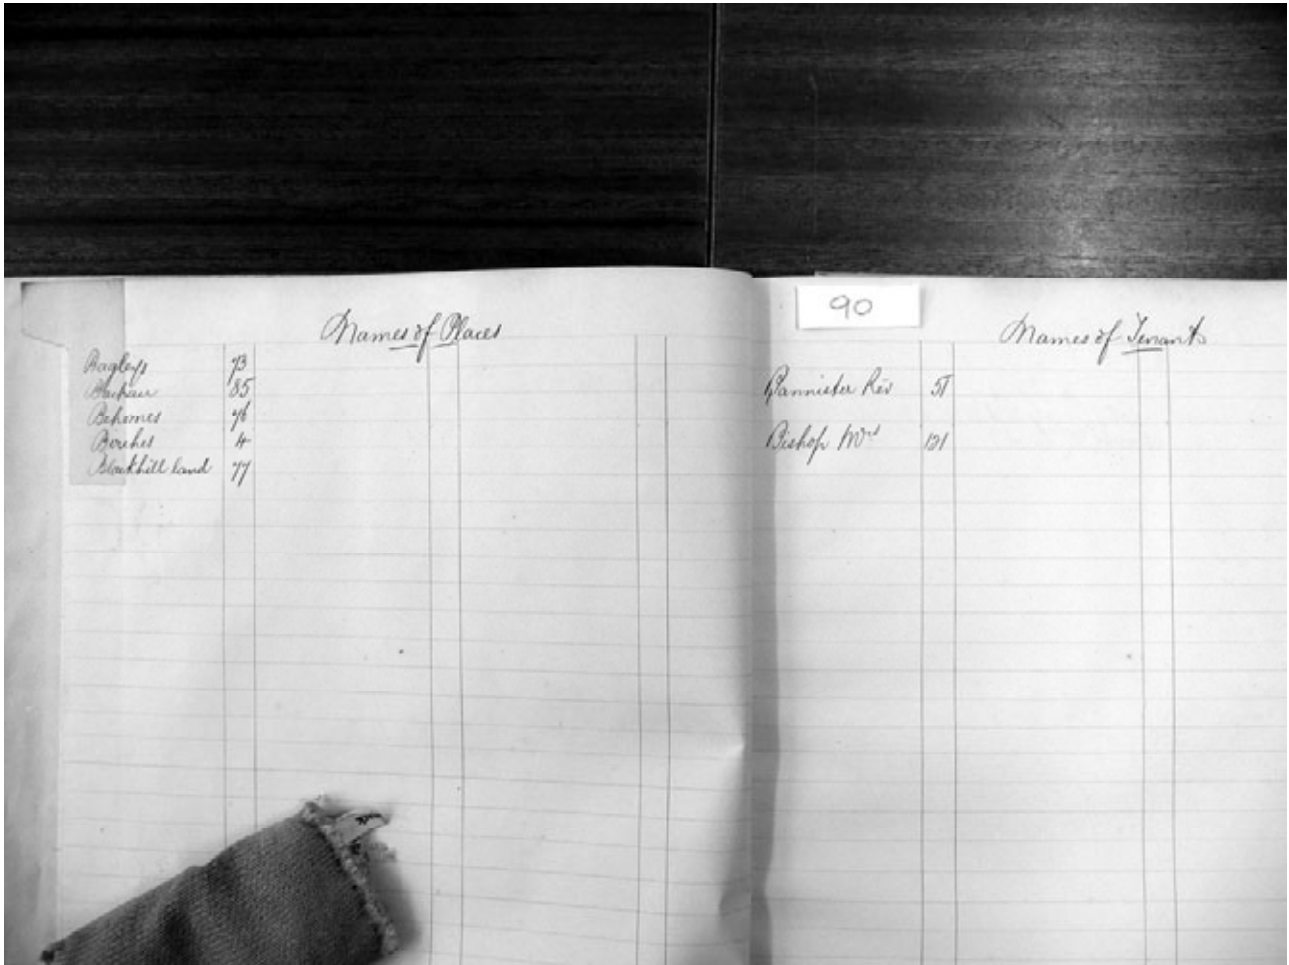 Names of Places
Bagleys 73
85
Behemes 76
Berches 4
Blackhill land 77
90
Names of Tenants
Bannister Rev 51
Bishop Mrs 121